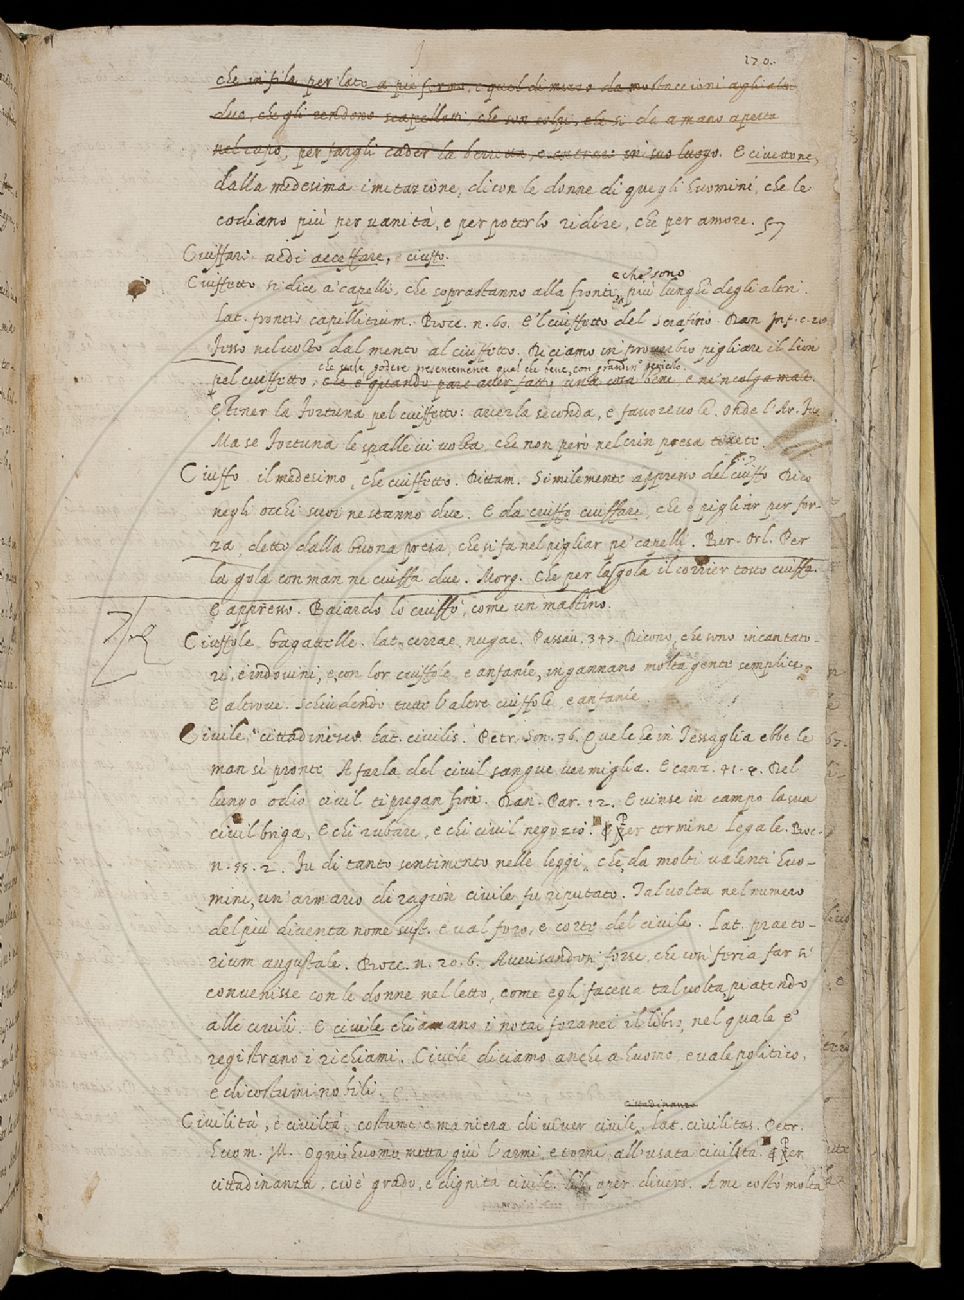 170.
che in fila per lato a piè fermo, e quel di mezo da mostaccioni agli altri
due, che gli rendono scapellotti, che son colpi, che si dà a mano aperta
nel capo, per fargli cader la berretta, e entrar in suo luogo. E civettone,
dalla medesima imitazione, dicon le donne di quegli huomini, che le
codiano più per vanità, e per poterlo ridire, che per amore. 57
Ciuffare vedi acceffare, e ciuffo.
e che sono
Ciuffetto si dice a' capelli, che soprastanno alla fronte, più lunghi degli altri.
Lat. frontis capellitium. Bocc. n. 60. E 'l ciuffetto del Serafino. Dan. Inf. c. 28
Fesso nel volto dal mento al ciuffetto. Diciamo in proverbio pigliare il Lion
che vale godere presentemente qual che bene, con grandiss. pericolo.
pel ciuffetto, che è quando pare aver fatto una cosa bene, e ne 'ncolga male.
E tener la fortuna pel ciuffetto: averla seconda, e favorevole, onde l'Ar. Fur.
Ma se fortuna le spalle vi volta, che non però nel crin presa tenete.
Ciuffo il medesimo, che ciuffetto. Dittam. Similemente appresso del ciuffo Dico
negli occhi suoi ne stanno due. E da ciuffo ciuffare, che è pigliar per for-
za, detto dalla buona presa, che si fa nel pigliar pe' capelli. Ber. Orl. Per
la gola con man ne ciuffa due. Morg. Che per la gola il corrier tosto ciuffa.
e appresso. Baiardo lo ciuffò, come un mastino.
Ciuffole bagattelle. lat. cerrae, nugae. Passav. 347. Dicono, che sono incantato-
ri, e indovini, e con lor ciuffole e anfanie, ingannano molta gente semplice.
E altrove. Schiudendo tutte l'altre ciuffole, e anfanie.
Civile cittadinesco. Lat. civilis. Petr. Son. 36. Que' che in Tessaglia ebbe le
man sì pronte A farla del civil sangue vermiglia. E canz. 41. 8. Del
lungo odio civil ti pregan fine. Dan. Par. 12. E vinse in campo la sua
civil briga, E chi rubare, e chi civil negozio. Per termine Legale. Bocc.
n. 55. 2. Fu di tanto sentimento nelle leggi, che da molti valenti huo-
mini, un armario di ragion civile fu riputato. Talvolta nel numero
del più diventa nome sust. e val foro, e corte del civile. Lat. praeto-
rium augustale. Bocc. n. 20. 6. Avvisandosi forse, che così feria far si
convenisse con le donne nel letto, come egli faceva talvolta piatendo
alle civili. E civile chiamano i notai foranei il libro, nel quale e'
registrano i richiami. Civile diciamo anche a huomo, e vale politico,
e di costumi nobili.
cittadinanza
Civiltà, e civilità, costume e maniera di viver civile. Lat. civilitas. Petr.
Huom. Ill. Ogni huomo metta giù l'armi, e torni all'usata civiltà. Per
cittadinanza, cioè grado, e dignità civile. Lib. oper. divers. A me costò molta